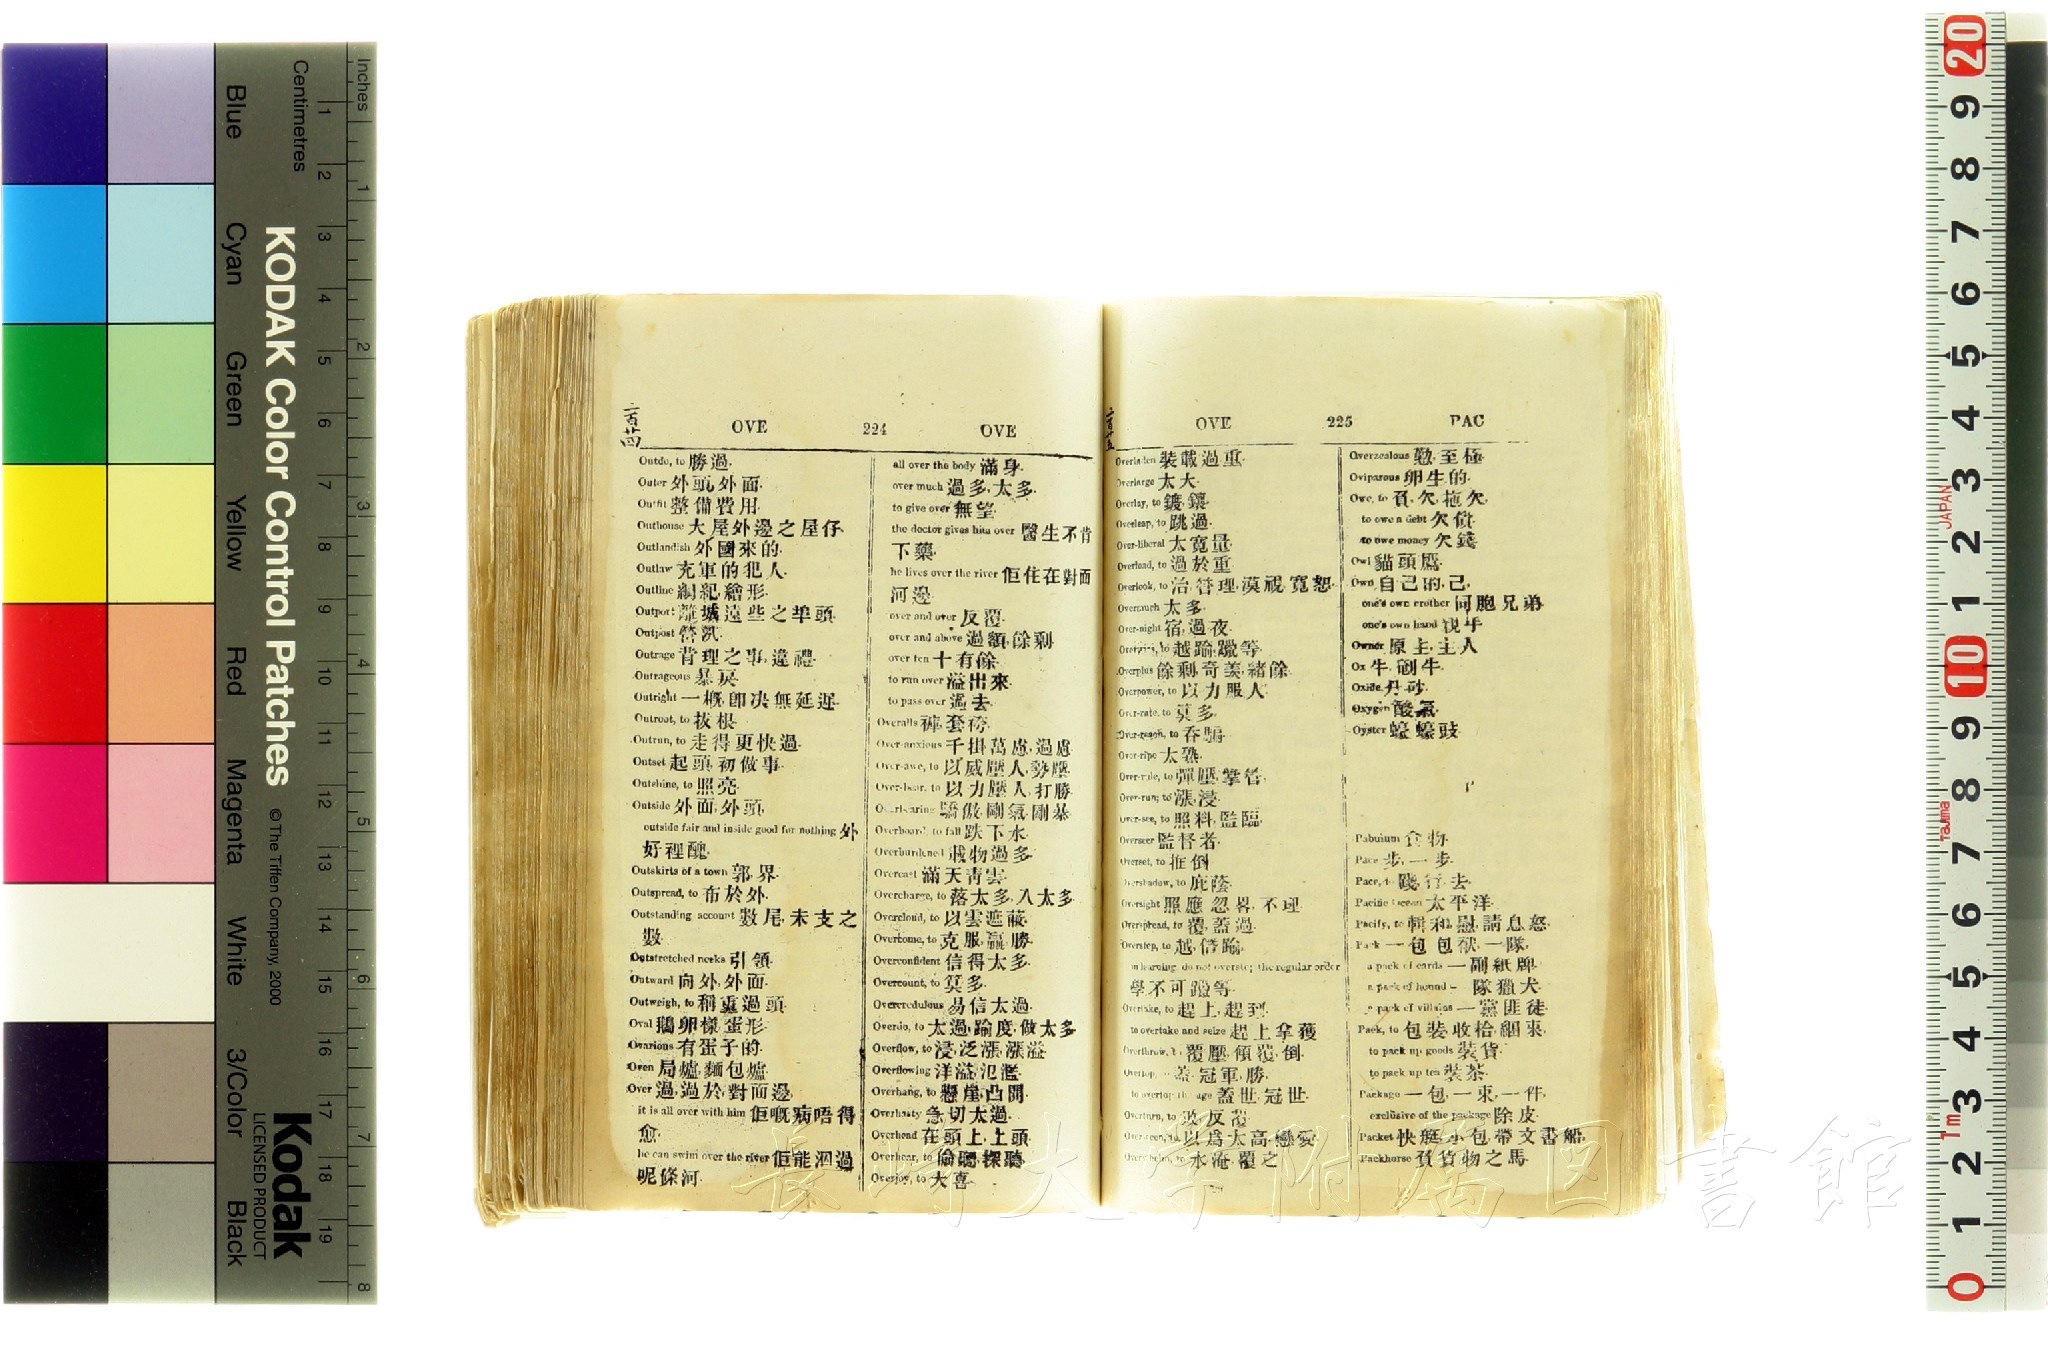 Inches
Centimetres
KODAK Color Control Patches © The Tiffen Company, 2000
Kodak
LICENSED PRODUCT
Blue Cyan Green Yellow Red Magenta White 3/Color Black
二百廿四
OVE 224 OVE
Outdo, to 勝過.
Outer 外頭,外面.
Outfit 整備費用.
Outhouse 大屋外邊之屋仔.
Outlandish 外國來的.
Outlaw 充軍的犯人.
Outline 綱紀,繪形.
Outport 離城遠些之埠頭.
Outpost 營汛.
Outrage 背理之事,違禮.
Outrageous 暴戾.
Outright 一概,卽决,無延遲.
Outroot, to 拔根.
Outrun, to 走得更快過.
Outset 起頭,初做事.
Outshine, to 照亮.
Outside 外面,外頭.
outside fair and inside good for nothing 外
好裡醜.
Outskirts of a town 郭界.
Outspread, to 布於外.
Outstanding account 數尾,未支之
數.
Outstretched necks 引領.
Outward 向外,外面.
Outweigh, to 稱重過頭.
Oval 鵝卵樣,蛋形.
Ovarious 有蛋子的.
Oven 局爐,麵包爐.
Over 過,過於,對面邊.
it is all over with him 佢嘅病唔得
愈.
he can swim over the river 佢能泅過
呢條河.
all over the body 滿身.
over much 過多,太多.
to give over 無望.
the doctor gives him over 醫生不肯
下藥.
he lives over the river 佢住在對面
河邊.
over and over 反覆.
over and above 過額,餘剩.
over ten 十有餘.
to run over 溢出來.
to pass over 過去.
Overalls 褲,套袴.
Over-anxious 千掛萬慮,過慮
Over-awe, to 以威壓人,勢壓.
Over-bear, to 以力壓人,打勝.
Overbearing 驕傲,剛氣,剛暴.
Overboard, to fall 跌下水.
Overburdened 載物過多.
Overcast 滿天靑雲.
Overcharge, to 落太多,入太多.
Overcloud, to 以雲遮蔽.
Overcome, to 克服,贏,勝.
Overconfident 信得太多.
Overcount, to 算多.
Overcredulous 易信太過.
Overdo, to 太過,踰度,做太多
Overflow, to 浸,泛漲,漲溢
Overflowing 洋溢,氾濫.
Overhang, to 懸崖,凸開.
Overhasty 急切太過.
Overhead 在頭上,上頭.
Overhear, to 偷聽,探聽.
Overjoy, to 大喜.
二百廿五
OVE 225 PAC
Overladen 裝載過重.
Overlarge 太大.
Overlay, to 鍍,鑲.
Overleap, to 跳過.
Over-liberal 太寬量.
Overload, to 過於重.
Overlook, to 治,管理,漠視,寬恕.
Overmuch 太多.
Over-night 宿,過夜.
越踰,躐等.
Overplus 餘剩,奇羡,緒餘.
Overpower, to 以力服人.
Over-rate, to 算多.
Over-reach, to 吞騙.
Over-ripe 太熟.
Over-rule, to 彈壓,掌管.
Over-run, to 漲,浸.
Over-see, to 照料,監臨.
Overseer 監督者.
Overset, to 推倒.
Overshadow, to 庇蔭.
Oversight 照應,忽畧,不理.
Overspread, to 覆,蓋過.
Overstep, to 越,僭踰.
in learning, do not overstep the regular order
學不可躐等.
Overtake, to 趕上,趕到.
to overtake and seize 趕上拿獲
Overthrow, to 覆壓,傾覆,倒.
Overtop, to 蓋,冠軍,勝.
to overtop the age 蓋世,冠世.
Overturn, to 反覆.
Overween, to 以爲太高,戀愛
Overwhelm, to 水淹,覆之
Overzealous 勤,至極.
Oviparous 卵生的.
Owe, to 負,欠,拖欠.
to owe a debt 欠債.
to owe money 欠錢.
Owl 貓頭鷹.
Own 自己的,己.
one's own brother 同胞兄弟.
one's own hand 親手.
Owner 原主,主人
Ox 牛,劏牛.
Oxide 丹砂.
Oxygen 酸氣.
Oyster 蠔,蠔豉.
Pabulum 食物.
Pace 步,一步.
Pace, to 踐,行去.
Pacific Ocean 太平洋.
Pacify, to 輯和,慰,請息怒.
Pack 一包,包袱,一隊.
a pack of cards 一副紙牌.
a pack of hound 一隊獵犬.
a pack of villains 一黨匪徒.
Pack, to 包裝,收拾,綑束.
to pack up goods 裝貨.
to pack up tea 裝茶.
Package 一包,一束,一件.
exclusive of the package 除皮.
Packet 快艇,小包,帶文書船.
Packhorse 負貨物之馬.
長崎大学附属図書館
JAPAN
Tajima
1m